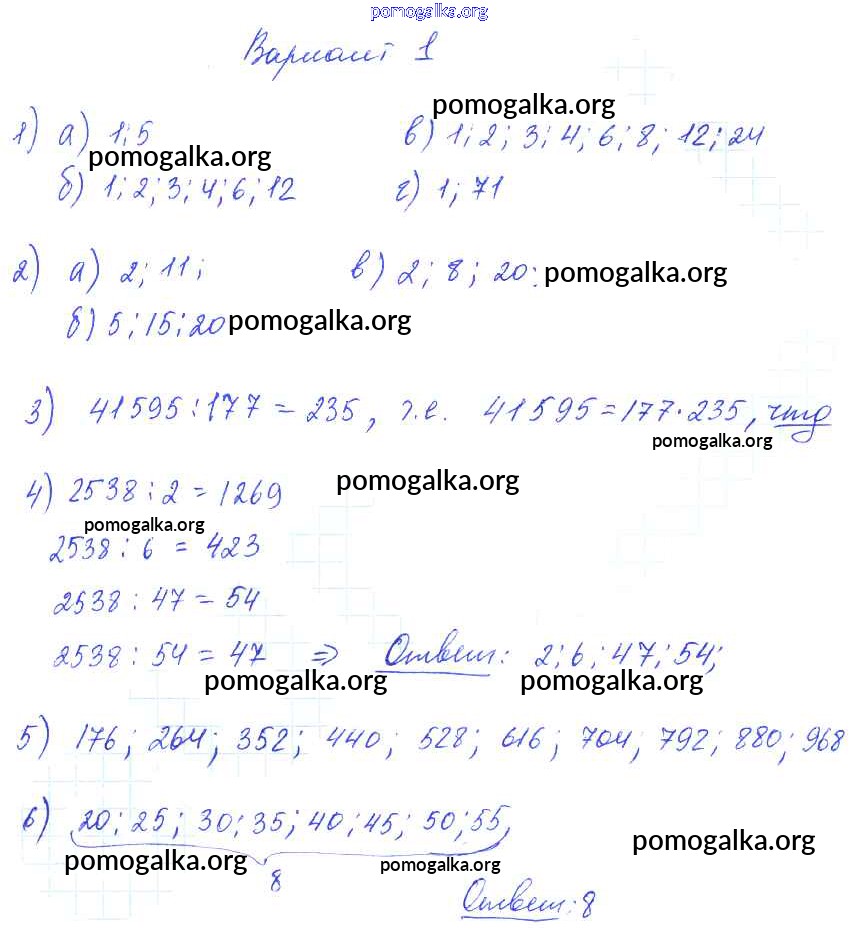 pomogalka.org
Вариант 1
pomogalka.org
1) а) 1; 5 в) 1; 2; 3; 4; 6; 8; 12; 24
pomogalka.org
б) 1; 2; 3; 4; 6; 12 г) 1; 71
2) а) 2; 11; в) 2; 8; 20; pomogalka.org
б) 5; 15; 20 pomogalka.org
3) 41595 : 177 = 235, т.е. 41595 = 177 · 235, чтд
pomogalka.org
4) 2538 : 2 = 1269 pomogalka.org
pomogalka.org
2538 : 6 = 423
2538 : 47 = 54
2538 : 54 = 47 ⇒ Ответ: 2; 6; 47; 54;
pomogalka.org pomogalka.org
5) 176; 264; 352; 440; 528; 616; 704; 792; 880; 968
6) 20; 25; 30; 35; 40; 45; 50; 55,
pomogalka.org
pomogalka.org pomogalka.org
8
Ответ: 8